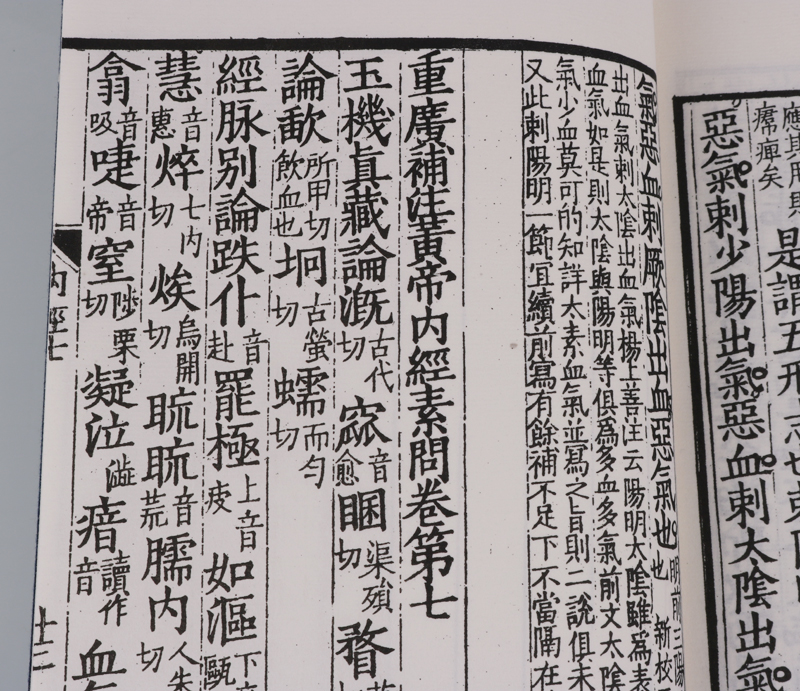 應其用其
癤痺矣
是謂五形志也刺陽
惡氣刺少陽出氣惡血刺太陰出氣
氣惡血刺厥陰出血惡氣也
明前三陽
也 新校
出血氣刺太陰出血氣楊上善注云陽明太陰雖為表
血氣如是則太陰與陽明等俱為多血多氣前文太陰
氣少血莫可的知詳太素血氣並寫之旨則二說俱未
又此刺陽明一節宜續前寫有餘補不足下不當隔在
重廣補注黃帝內經素問卷第七
玉機真藏論溉古代切窳音愈䐃渠殞切瞀
論歃所甲切飲血也坰古螢切蠕而勻切
經脉別論跌仆音赴罷極上音疲如漚下
慧音惠焠七內切㶼烏開切䀮䀮音荒臑內人朱切
翕音吸啑音帝窒陟栗切凝泣澁瘖讀作音血氣
內經七
十二